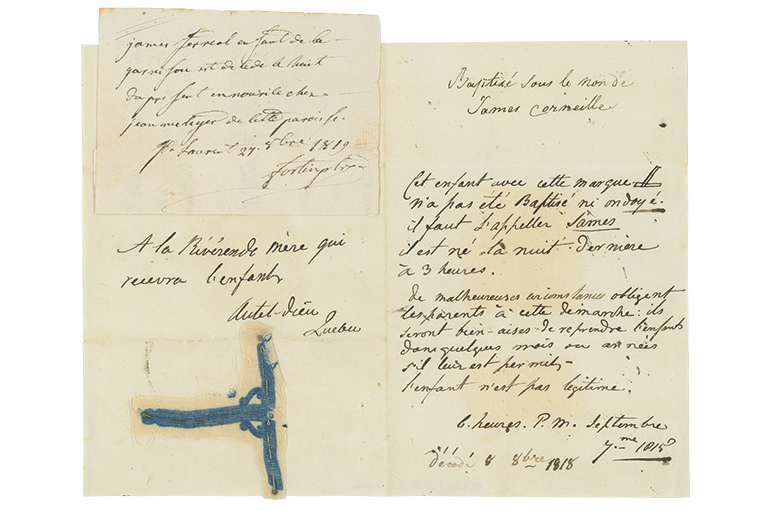 james ferreol enfant de la
garnison est dcéde le huit
du present en nourice chez
jean metayer de cette paroisse.
St Laurent 27. 8bre 1819
fortin ptre
A la Révérende mère qui
recevra l'enfant
autel-dieu
Quebec
Baptisé sous le nom de
James Corneille
Cet enfant avec cette marque
n'a pas été Baptisé ni ondoyé.
il faut l'appeller James
il est né la nuit derniere
à 3 heures.
de malheureuses circonstances obligent
les parents à cette demarche: ils
seront bien-aises de reprendre l'enfant
dans quelques mois ou années
s'il leur est permit,
l'enfant n'est pas legitime.
6 heures. P.M. Septembre
7me
décédé 8 8bre 1818